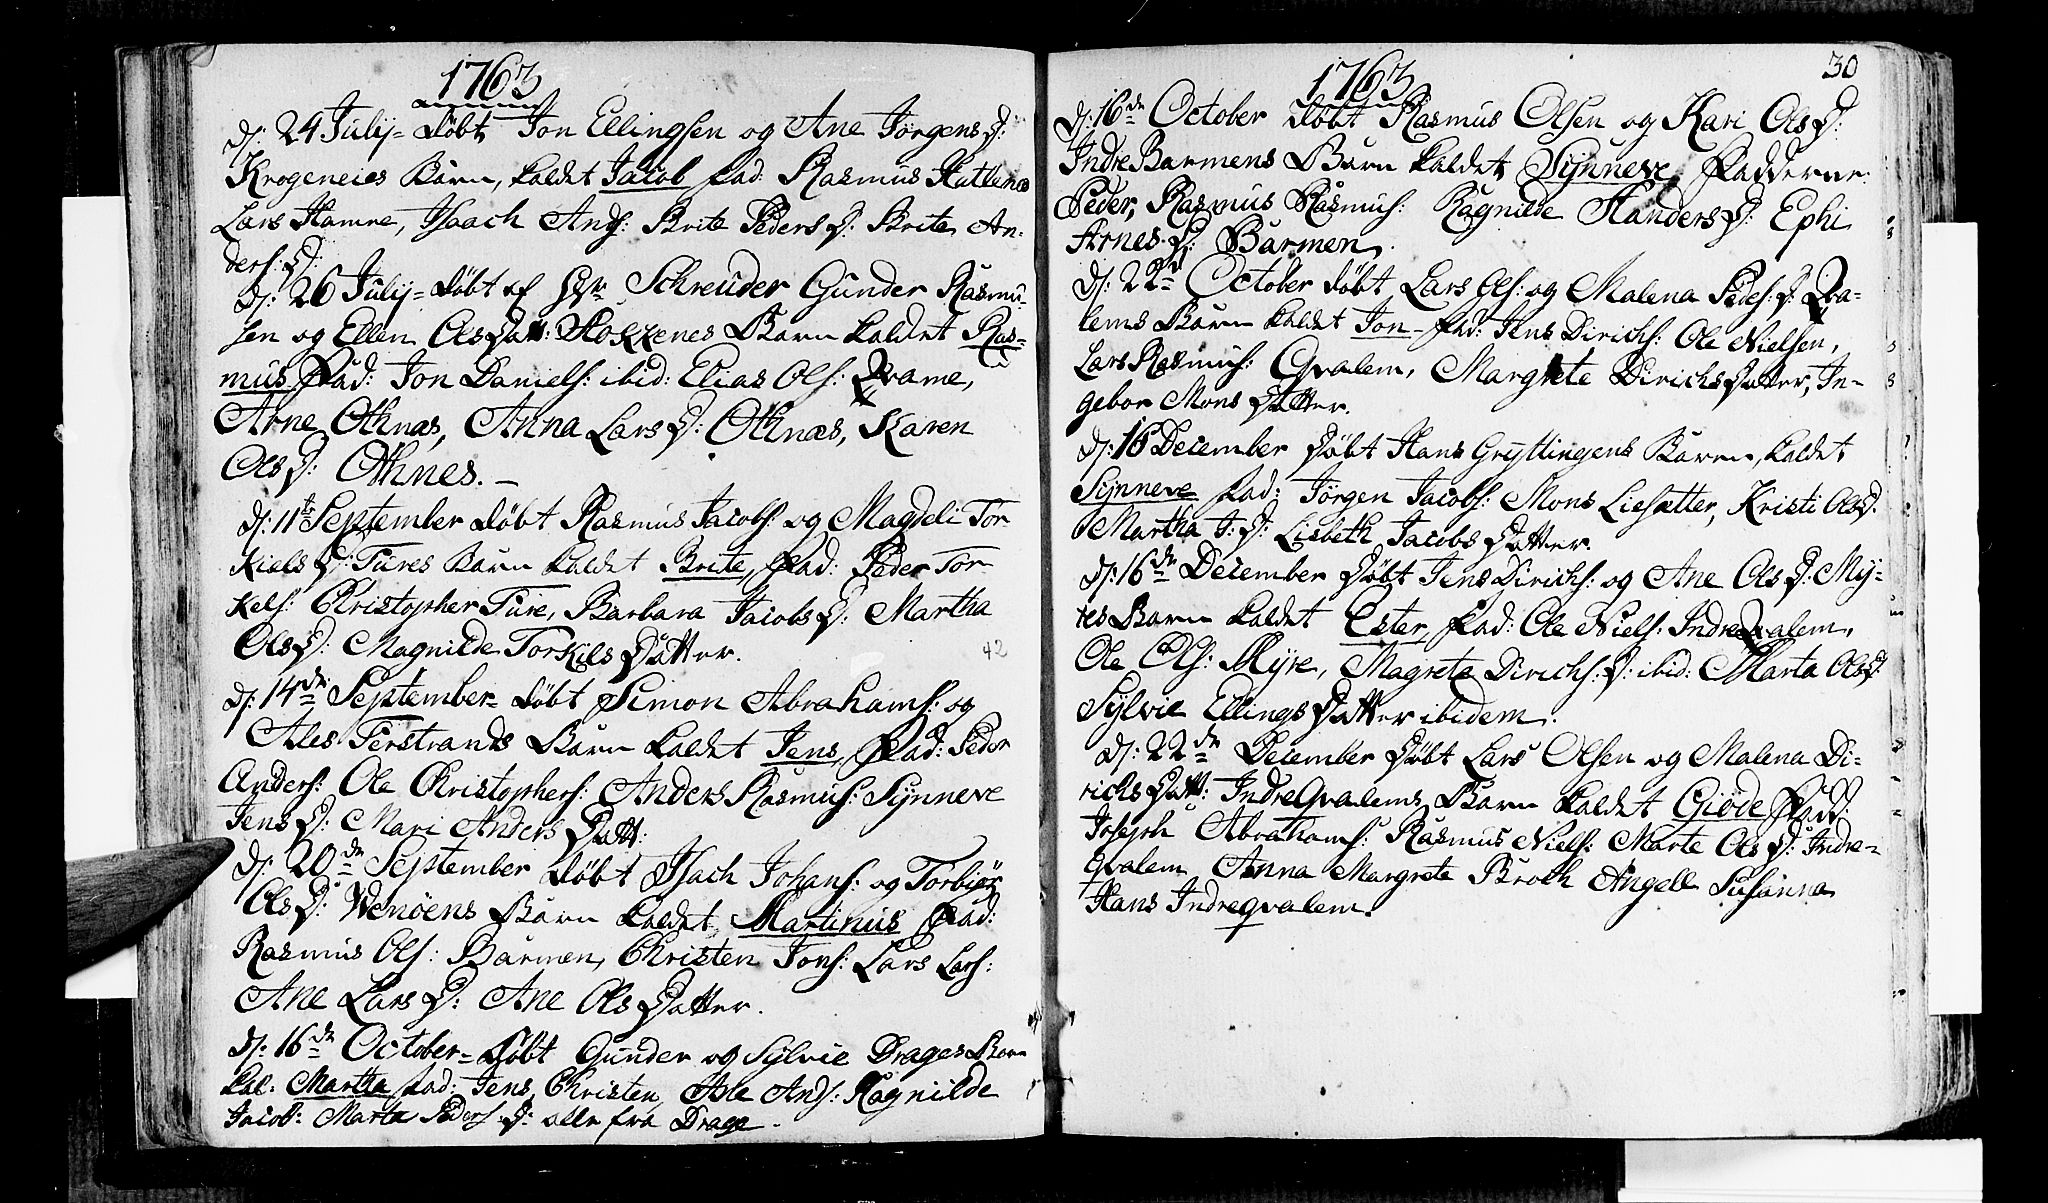 1763
d: 24 Julij = døbt Jon Ellingsen og Ane Jørgens D:
Krogeneies Barn, kaldet Jacob fad: Rasmus Hatlenes
Lars Hamre, Isaach Ands: Brite Peders D: Brite An-
ders: D:
d: 26 Julij = døbt af Hr Schreuder Gunder Rasmu-
sen og Ellen Ols Datt: Hokkenes Barn kaldet Ras-
mus Fad: Jon Daniels: ibid: Elias Ols: Qvame,
Arne Othnæs, Anna Lars D: Othnæs, Karen
Ols D: Othnes. –
d: 11te September døbt Rasmus Jacobs: og Magdeli Tor
Kiels D: Tures Barn kaldet Brite, Fad: Peder Tor
Kels: Christopher Ture, Barbara Jacobs D: Martha
Ols D: Magnilde Torkils Datter.
42
d: 14de September = døbt Simon Abrahams: og
Ales Terstrands Barn kaldet Jens, Fad: Peder
Anders: Ole Christophers: Anders Rasmus: Synneve
Jens D: Mari Anders Datt:
d: 20de September døbt Isach Johans: og Torbiør
Ols D: Wenøens Barn kaldet Martinus Fad:
Rasmus Ols: Barmen, Christen Jons: Lars Lars:
Ane Lars D: Ane Ols Datter.
d: 16de October = døbt Gunder og Sylvie Drages Barn
kal: Martha fad: Jens, Christen, Ands: Ragnilde
Jacob: Marta Peders D: alle fra Drage.
1763
30
d: 16de October døbt Rasmus Olsen og Kari Ols D:
Indre Barmens Barn kaldet Synneve Fadderne:
Peder, Rasmus Rasmus: Ragnilde Handers D: Ephi
Arnes D: Barmen.
d: 22de October døbt Lars Ols: og Malena Peders: D: Qva-
lems Barn kaldet Jon – fad: Jens Dirichs: Ole Nielsen,
Lars Rasmus: Qvalem, Margrete Dirichs Datter, In-
gebor Mons Datter.
d: 16 December Døbt Hans Gryttingens Barn, kaldet
Synneve fad: Jørgen Jacobs: Mons Liesætter, Kristi Ols D.
Martha J: D: Lisbeth Jacobs Datter.
d: 16de December Døbt Jens Dirichs: og Ane Ols D: My-
res Barn kaldet Ester, fad: Ole Niels: Indre Qvalem,
Ole Ols: Myre, Magrete Dirichs: D: ibid: Marta Ols D:
Sylvie Ellings Datter ibidem.
d: 22de December Døbt Lars Olsen og Malena Di-
richs Datt: Indre Qvalems Barn kaldet Giøde Fadd
Joseph Abrahams: Rasmus Niels: Marte Ols D: Indre-
qvalem Anna Margrete Broch Angell Susanna
Hans Indreqvalem.